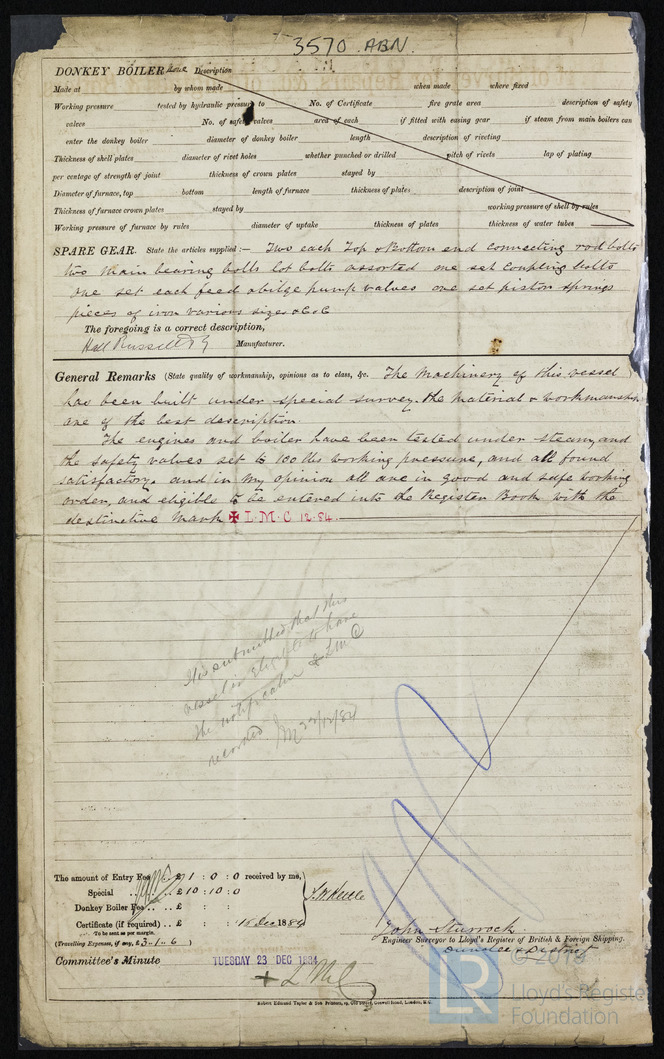 3570 ABN.
DONKEY BOILER none Description
Made at by whom made when made where fixed
Working pressure tested by hydraulic pressure to No. of Certificate fire grate area description of safety
valves No. of safety valves area of each if fitted with easing gear if steam from main boilers can
enter the donkey boiler diameter of donkey boiler length description of riveting
Thickness of shell plates diameter of rivet holes whether punched or drilled pitch of rivets lap of plating
per centage of strength of joint thickness of crown plates stayed by
Diameter of furnace, top bottom length of furnace thickness of plates description of joint
Thickness of furnace crown plates stayed by working pressure of shell by rules
Working pressure of furnace by rules diameter of uptake thickness of plates thickness of water tubes
SPARE GEAR. State the articles supplied:— Two each Top & Bottom end connecting rod bolts
two main bearing bolts lot bolts assorted one set coupling bolts
one set each feed & bilge pump valves one set piston springs
pieces of iron various sizes &c &c
The foregoing is a correct description,
Hall Russell & Co Manufacturer.
General Remarks (State quality of workmanship, opinions as to class, &c. The Machinery of this vessel
has been built under special survey. the material & workmanship
are of the best description
The engines and boiler have been tested under steam, and
the safety valves set to 100 lbs working pressure, and all found
satisfactory. and in my opinion all are in good and safe working
order, and eligible to be entered into the Register Book with the
destinctive Mark ✠ L.M.C 12.84.
It is submitted that this
vessel is eligible to have
the notification ✠ LMC
recorded 22/12/84
The amount of Entry Fee .. £ 1 : 0 : 0 received by me,
Special .. £ 10 : 10 : 0
Donkey Boiler Fee .. £ : :
Certificate (if required) .. £ : : 18 Dec 1884
To be sent as per margin.
(Travelling Expenses, if any, £ 3 .. 1 .. 6)
John Sturrock
Engineer Surveyor to Lloyd's Register of British & Foreign Shipping.
Dundee District
Committee's Minute TUESDAY 23 DEC 1884
+ LMC
Robert Edmund Taylor & Son Printers, 19, Old Street, Goswell Road, London, E.C.
© 2018
LR
Lloyd's Register
Foundation